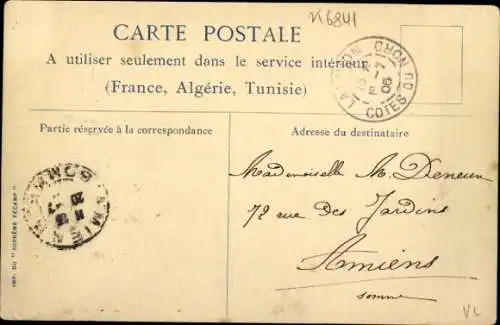 K6841
CARTE POSTALE
A utiliser seulement dans le service intérieur
(France, Algérie, Tunisie)
CHON DU
COTES
06
Partie réservée à la correspondance
Adresse du destinataire
Mademoiselle M. Deneux
72 rue des Jardins
Amiens
somme
AMIENS
SOMME
IMP. DU "SUPRÊME PÉCANP"
VL